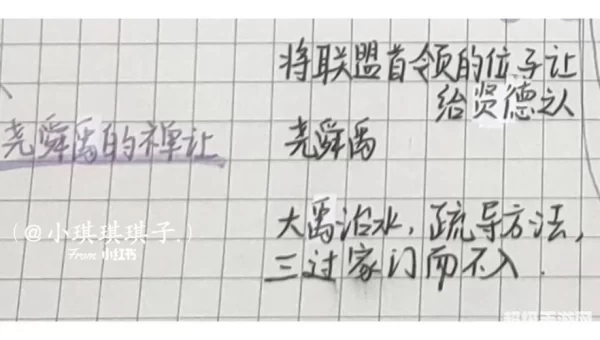 将联盟首领的位子让
给贤德之人
尧舜禹的禅让
尧舜禹
大禹治水，疏导方法，
三过家门而不入.
(@小琪琪琪子.)
From 小红书
超级手游网